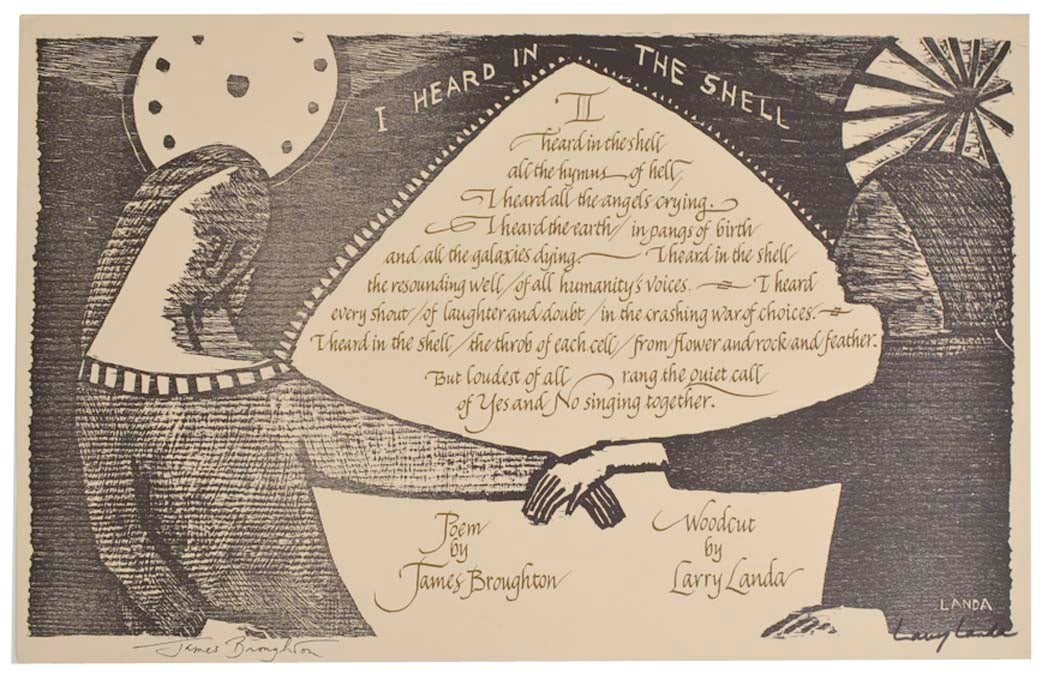 I HEARD IN THE SHELL
I
heard in the shell
all the hymns of hell,
I heard all the angels crying.
I heard the earth / in pangs of birth
and all the galaxies dying. I heard in the shell
the resounding well / of all humanity's voices. I heard
every shout / of laughter and doubt / in the crashing war of choices.
I heard in the shell / the throb of each cell / from flower and rock and feather.
But loudest of all rang the quiet call
of Yes and No singing together.
Poem
by
James Broughton
Woodcut
by
Larry Landa
LANDA
James Broughton
Larry Landa